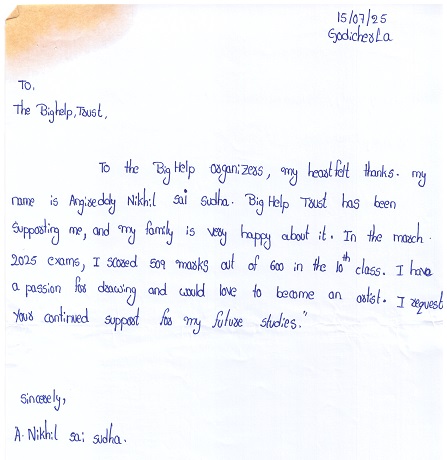 15/07/25
Godicherla
To.
The Bighelp, Trust,
To the Big Help organizers, my heartfelt thanks. my
name is Angireddy Nikhil sai sudha. Big Help Trust has been
supporting me, and my family is very happy about it. In the march.
2025 exams, I scored 509 marks out of 600 in the 10th class. I have
a passion for drawing and would love to become an artist. I request
your continued support for my future studies."
Sincerely,
A. Nikhil sai sudha.